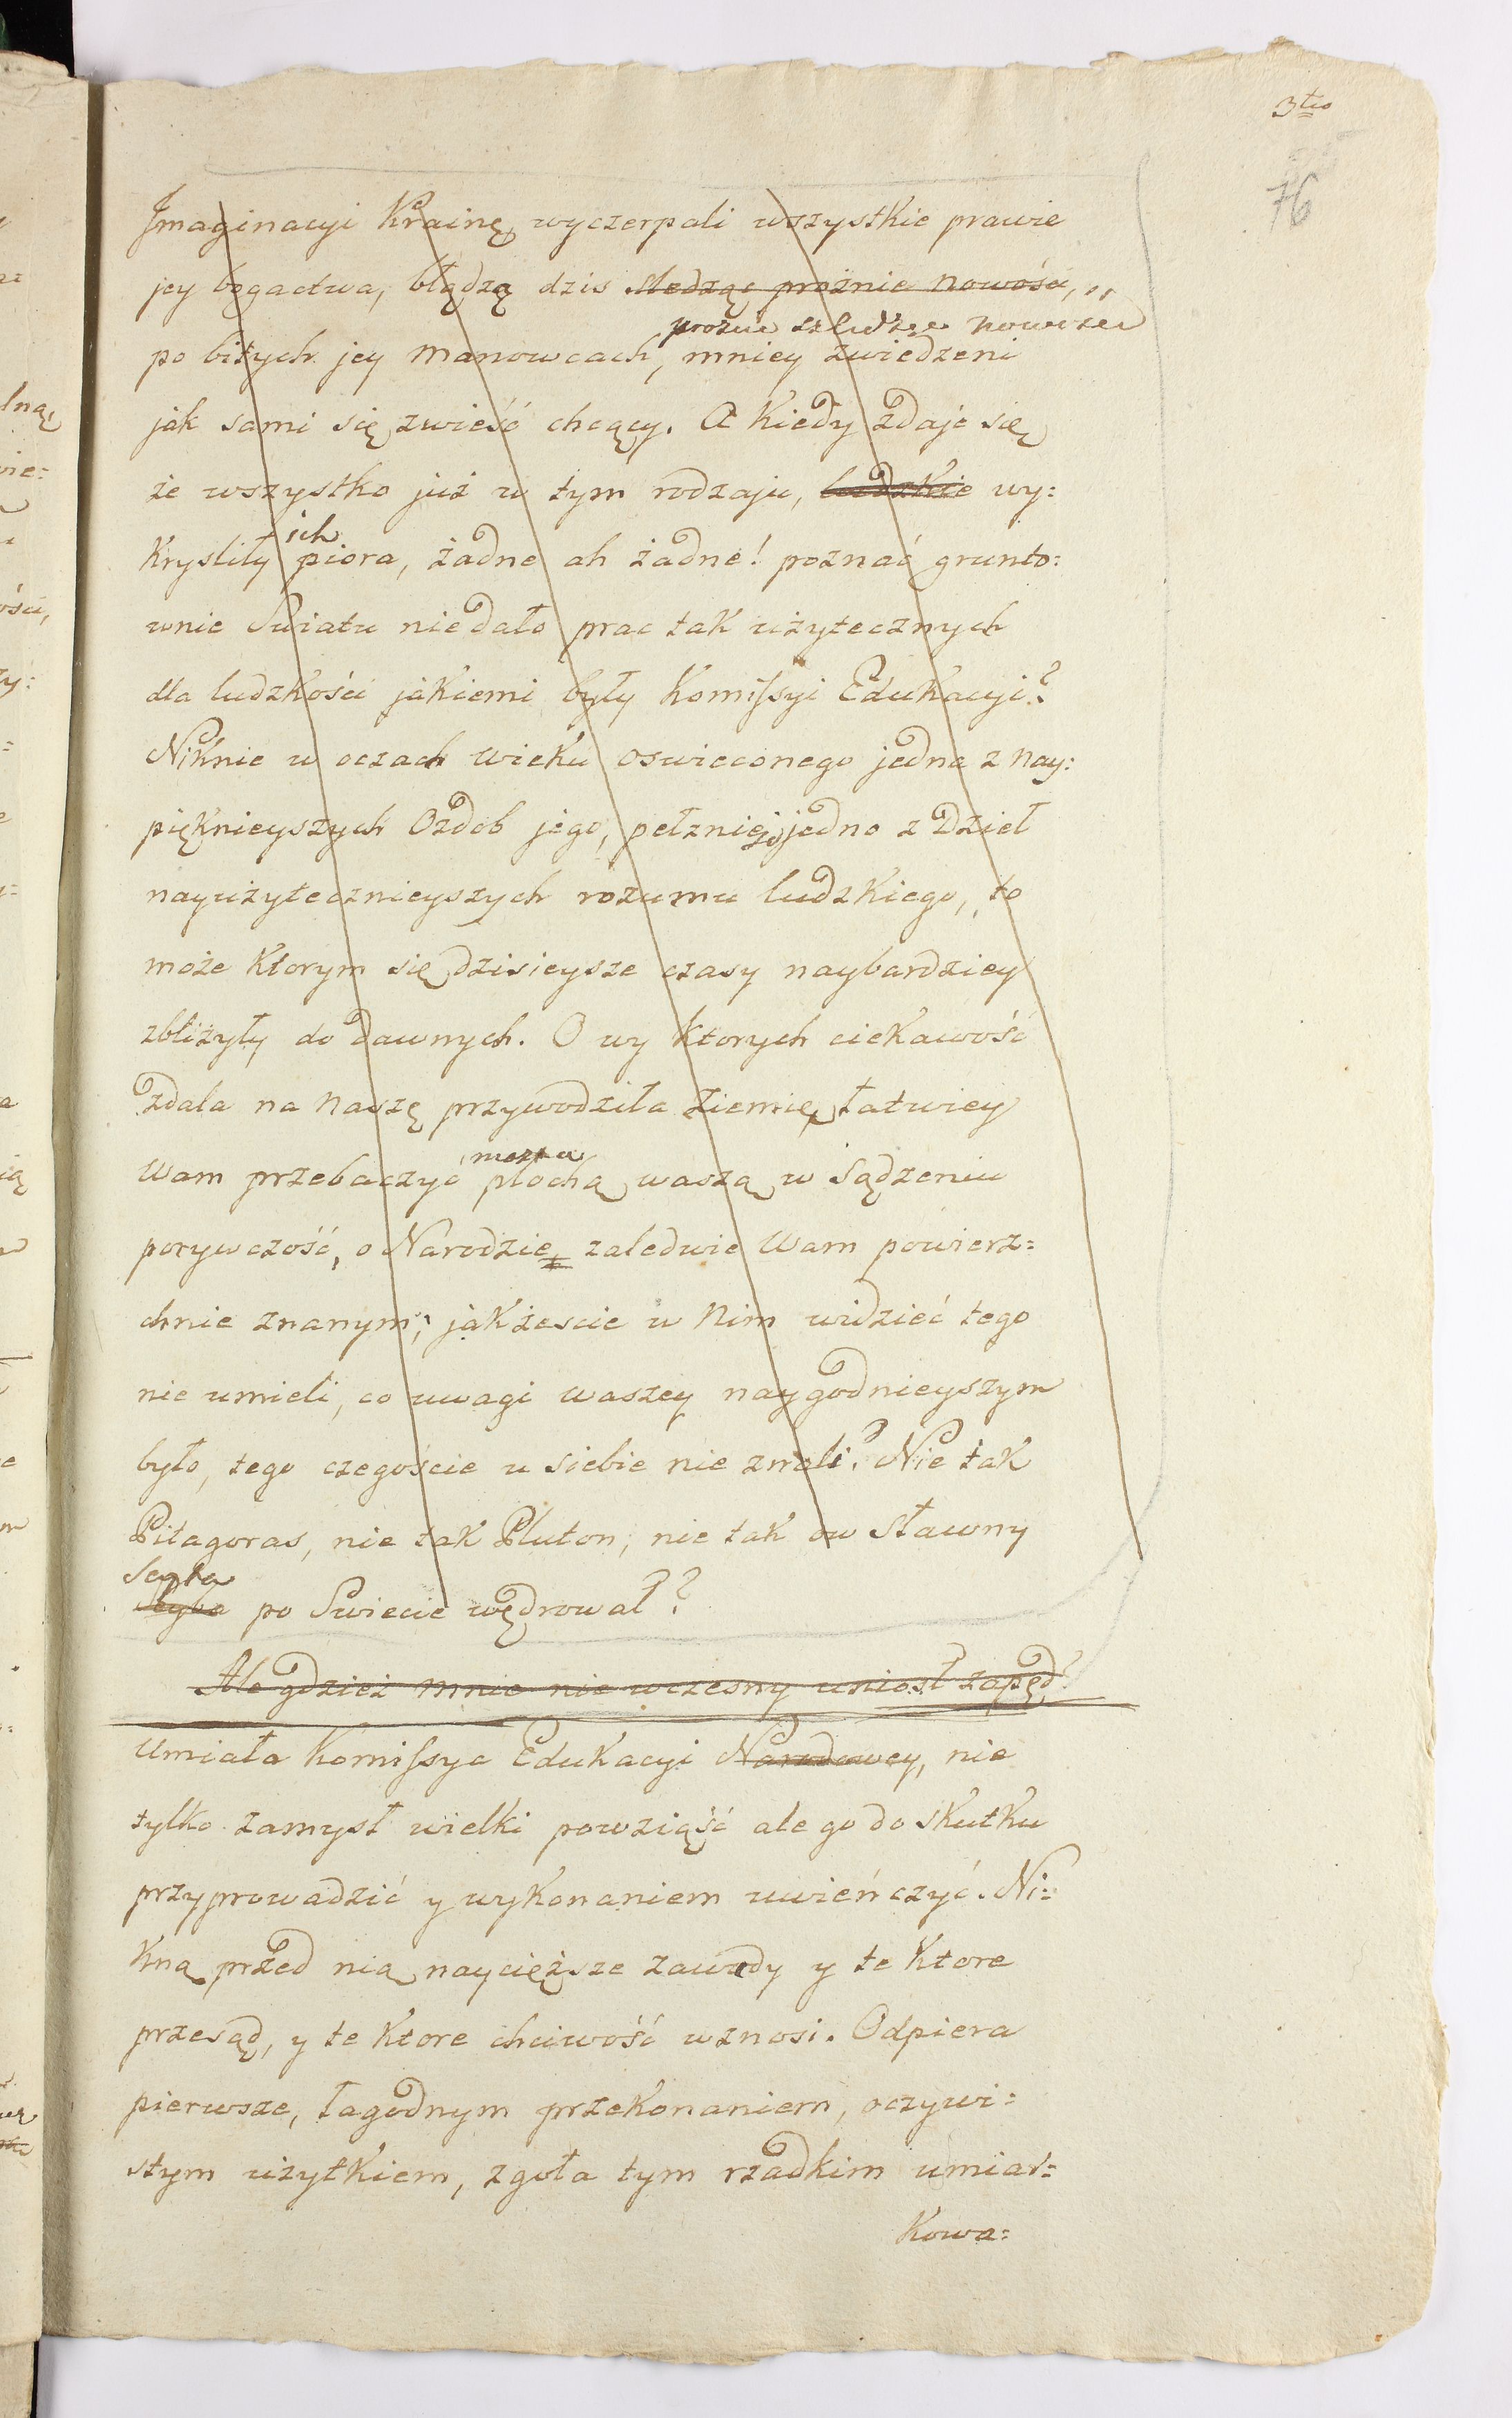 3tio
76
Imaginacyi Krainę, wyczerpali wszystkie prawie
jey bogactwa, błądzą dzis sledząc proźnie nowości,
nowości
po bitych jey manowcach, mniey zwiedzeni
jak sami się zwieść chcący. A kiedy zdaje się
że wszystko już w tym rodzaju, ludzkie wy:
ich
krysliły piora, żadne ah żadne! poznać grunto:
wnie Swiatu niedało prac tak użytecznych
dla ludzkości jakiemi były Komissyi Edukacyi?
Niknie w oczach wieku oswieconego jedna z nay:
pięknieyszych Ozdob jego, pełznie jedno z Dzieł
nayużytecznieyszych rozumu ludzkiego, to
może ktorym się dzisieysze czasy naybardziey
zbliżyły do dawnych. O wy ktorych ciekawość
zdala na naszę przywodziła ziemię, łatwiey
można
Wam przebaczyć płochą waszą w sądzeniu
porywczość, o Narodzie zaledwie Wam powierz:
chnie znanym; jakżescie w nim widzieć tego
nie umieli, co uwagi waszey naygodnieyszym
było, tego czegoście u siebie nie znali? Nie tak
Pitagoras, nie tak Pluton, nie tak ow sławny
Scyta
po Swiecie wędrował?
Ale gdzież mnie nie wczesny uniosł zapęd?
Umiała Komissya Edukacyi Narodowey, nie
tylko zamysł wielki powziąść ale go do skutku
przyprowadzić y wykonaniem uwieńczyć. Ni:
kną przed nią naycięższe zawady y te ktore
przesąd, y te ktore chciwość wznosi. Odpiera
pierwsze, łagodnym przekonaniem, oczywi:
stym użytkiem, zgoła tym rzadkim umiar:
kowa: